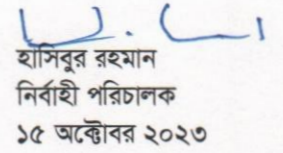 হাসিবুর রহমান
নির্বাহী পরিচালক
১৫ অক্টোবর ২০২৩